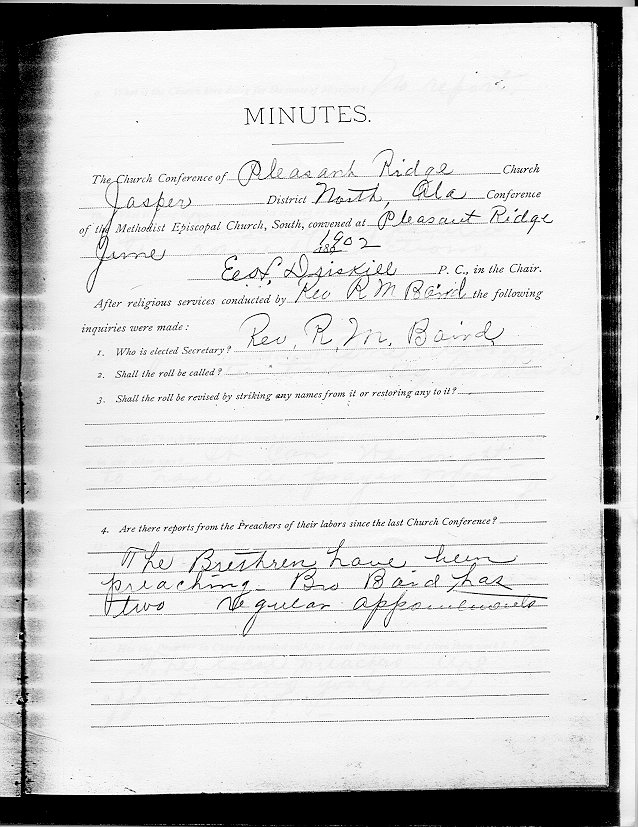 MINUTES.
The Church Conference of Pleasant Ridge Church
Jasper District North, Ala Conference
of the Methodist Episcopal Church, South, convened at Pleasant Ridge
June 1902
Driskill P. C., in the Chair.
After religious services conducted by Rev R M Baird the following
inquiries were made :
1. Who is elected Secretary? Rev, R, M, Baird
2. Shall the roll be called?
3. Shall the roll be revised by striking any names from it or restoring any to it?
4. Are there reports from the Preachers of their labors since the last Church Conference?
The Brethren have been
preaching - Bro Baird has
two regular appointments